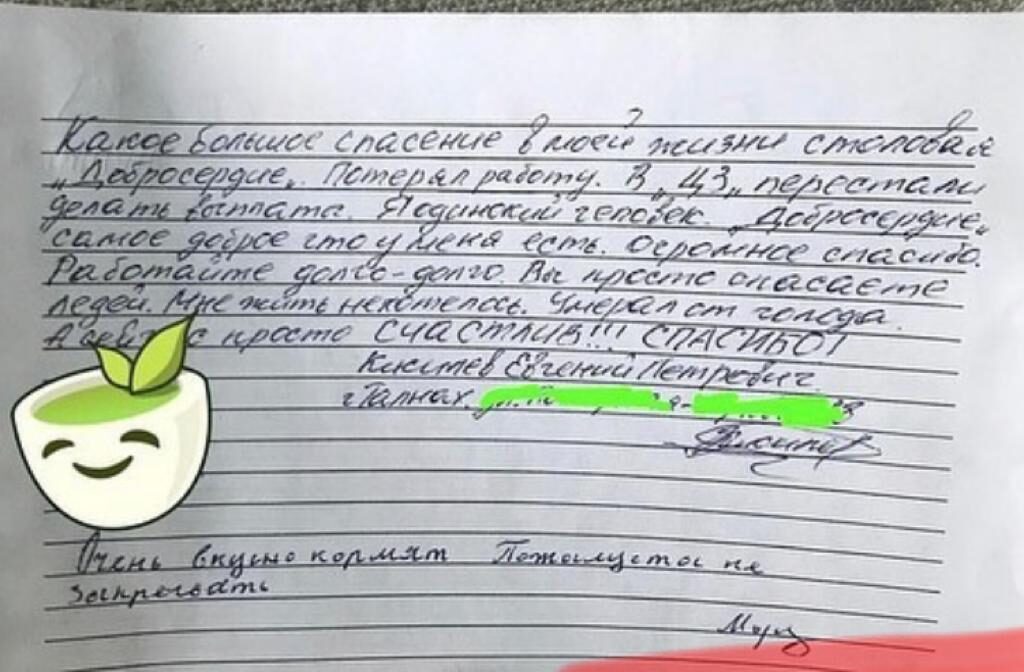 Какое большое спасение в моей жизни столовая
„Добросердие„. Потерял работу. В „ЦЗ„ перестали
делать выплаты. Я одинокий человек. „Добросердие„
самое доброе что у меня есть. Огромное спасибо.
Работайте долго-долго. Вы просто спасаете
людей. Мне жить нехотелось. Умерал от голода.
А сейчас просто СЧАСТЛИВ!!! СПАСИБО!
Евгений Петрович.
г Талнах.
Очень вкусно кормят Пожалуйста не
закрывать